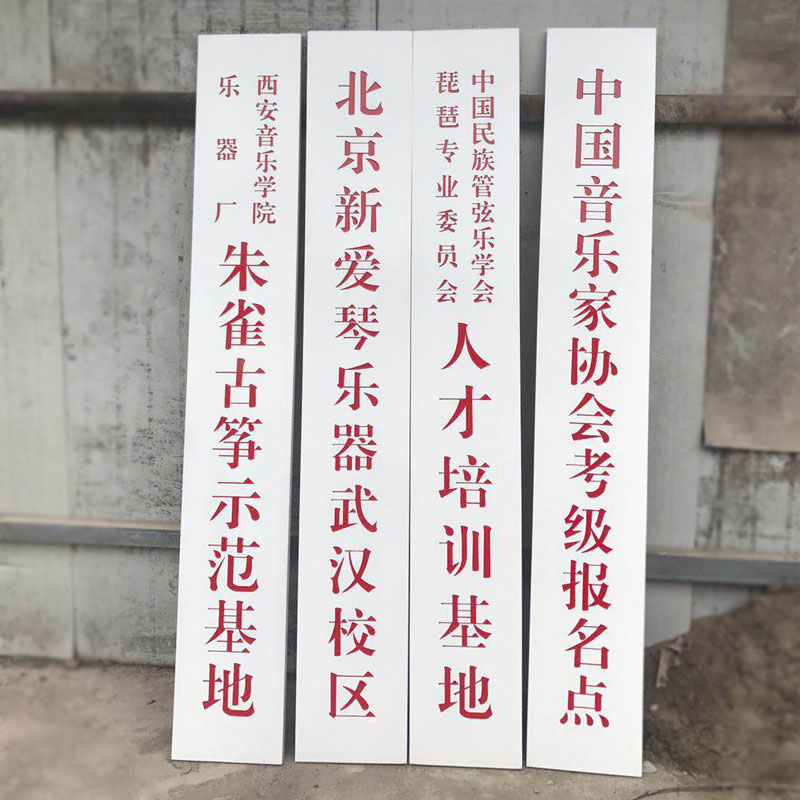 西安音乐学院
乐器厂
朱雀古筝示范基地
北京新爱琴乐器武汉校区
中国民族管弦乐学会
琵琶专业委员会
人才培训基地
中国音乐家协会考级报名点